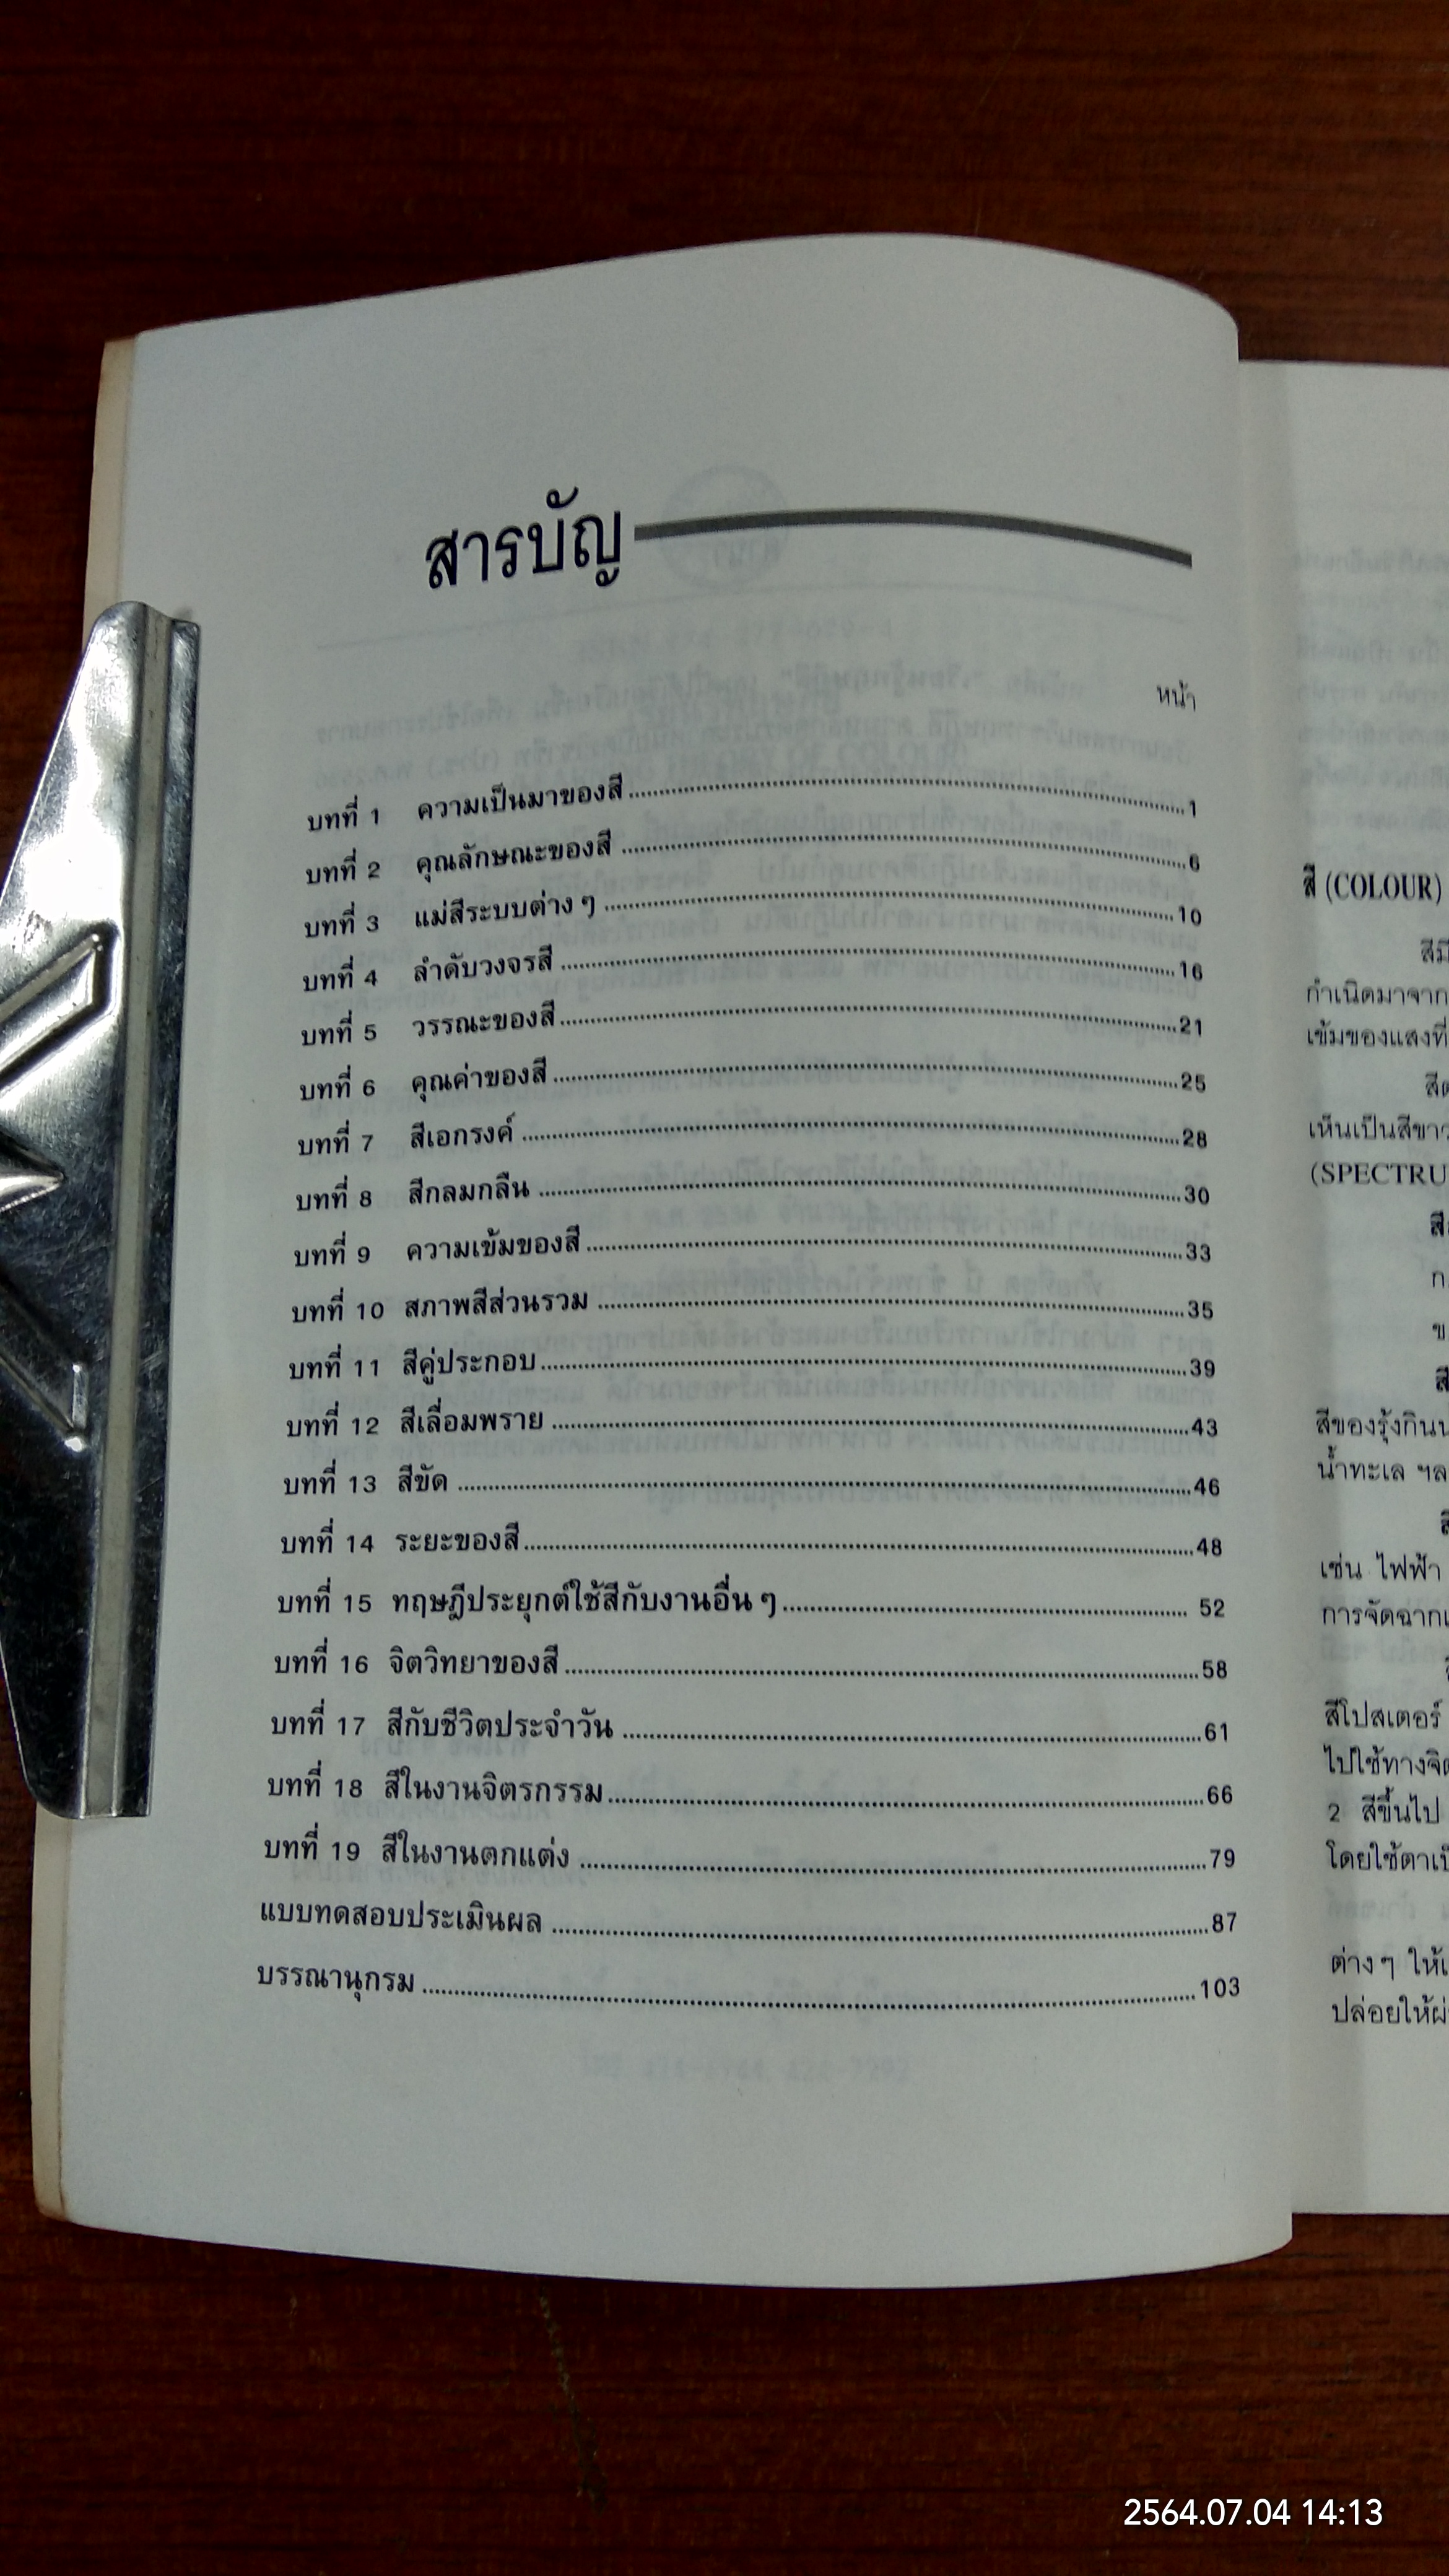 สารบัญ
หน้า
บทที่ 1 ความเป็นมาของสี....................1
บทที่ 2 คุณลักษณะของสี....................6
บทที่ 3 แม่สีระบบต่างๆ....................10
บทที่ 4 ลำดับวงจรสี....................16
บทที่ 5 วรรณะของสี....................21
บทที่ 6 คุณค่าของสี....................25
บทที่ 7 สีเอกรงค์....................28
บทที่ 8 สีกลมกลืน....................30
บทที่ 9 ความเข้มของสี....................33
บทที่ 10 สภาพสีส่วนรวม....................35
บทที่ 11 สีคู่ประกอบ....................39
บทที่ 12 สีเลื่อมพราย....................43
บทที่ 13 สีขัด....................46
บทที่ 14 ระยะของสี....................48
บทที่ 15 ทฤษฎีประยุกต์ใช้สีกับงานอื่นๆ....................52
บทที่ 16 จิตวิทยาของสี....................58
บทที่ 17 สีกับชีวิตประจำวัน....................61
บทที่ 18 สีในงานจิตรกรรม....................66
บทที่ 19 สีในงานตกแต่ง....................79
แบบทดสอบประเมินผล....................87
บรรณานุกรม....................103
สี (COLOUR)
กำเนิดมาจาก
เข้มของแสงที่
เห็นเป็นสีขาว
(SPECTRU
สีของรุ้งกินน
น้ำทะเล ฯล
เช่น ไฟฟ้า
การจัดฉาก
สีโปสเตอร์
ไปใช้ทางจิต
2 สีขึ้นไป
โดยใช้ตาเป็
ต่างๆ ให้เ
ปล่อยให้ผ่
2564.07.04 14:13